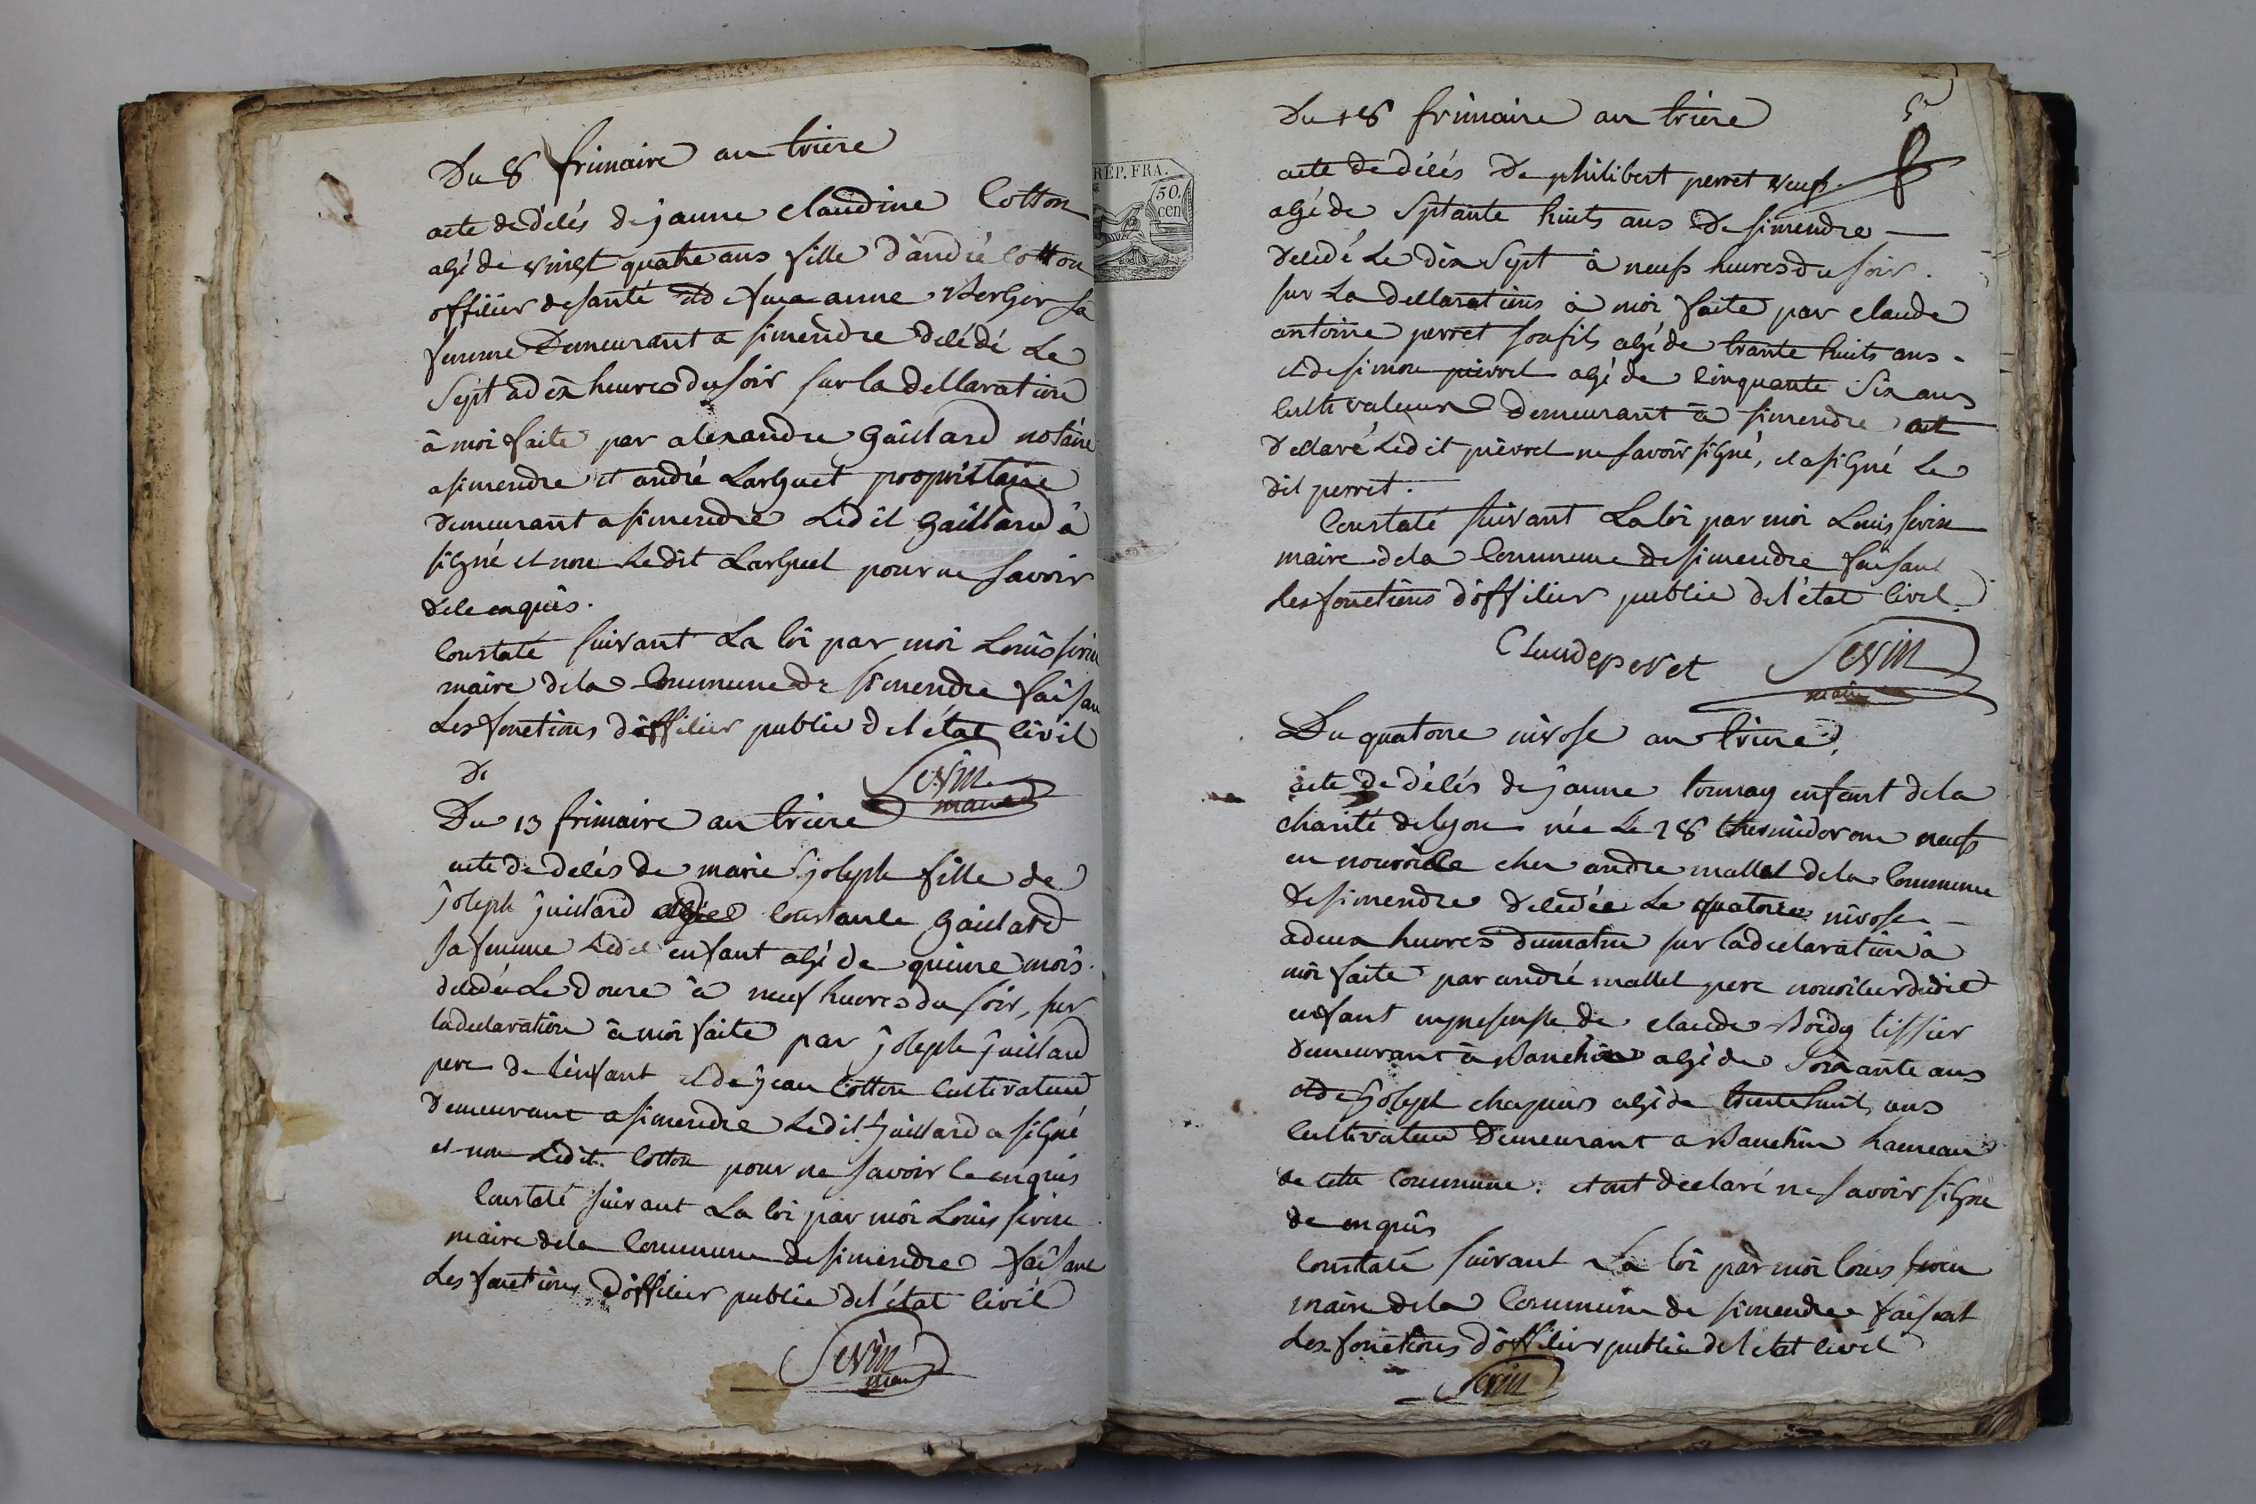 Du 8 frimaire an treize
acte de décés de jaune claudine Cotton
agé de vingt quatre ans fille d'andré Cotton
officier de santé et d anne Berger sa
femme Demeurant a simendre décédé le
sept a dix heures du soir sur la declaration
à moi faite par alexandre Gaillard notaire
a simendre et andré Larguet propriétaire
demeurant a simendre Ledit Gaillard à
signé et non Ledit Larguet pour ne savoir
de ce enquis.
Constaté suivant La loi par moi Louis sevin
maire de la Commune de simendre faisan
Les fonctions d'officier public de l'état civil
De
Sevin
maire
Du 13 frimaire an treize
acte de décés de marie joseph fille de
joseph juillard Constance Gaillard
sa femme Ledit enfant agé de quinze mois.
décédée Le douze à neuf heures du soir, sur
la declaration à moi faite par joseph juillard
pere de l'enfant et de jean Cotton Cultivateur
Demeurant a simendre Ledit juillard a signé
et non Ledit Cotton pour ne savoir le enquis
Constaté suivant La loi par moi Louis sevin
maire de la Commune de simendre faisant
Les fonctions d'officier public de l'état civil
Sevin
maire
REP. FRA.
50
cen
5
Du 18 frimaire an treize
acte de décés De philibert perret veuf
agé de septante huits ans De simendre
décédé Le dix sept à neufs heures du soir.
sur La declarations à moi faite par claude
antoine perret son fils agé de trante huits ans
et de simon pievret agé de Cinquante six ans
Cultivateurs demeurant à simendre ont
Declaré Ledit pievret ne savoir signé, et a signé Le
dit perret.
Constaté suivant La loi par moi Louis sevin
maire de la Commune de simendre faisant
Les fonctions d'officier public de l'état civil
Claudeperet
Sevin
maire
Du quatorze nivose an treize
acte de décés de jaune tournay enfant de la
charité de lyon née Le 28 thermidor an neufs
en nourrice chez andre mallet de la Commune
de simendre décédée Le quatorze nivose
a deux heures du matin sur la declaration à
moi faite par andré mallet pere nouricier dudit
enfant en presense de claude Boidy tissier
Demeurant à Banchin agé de soixante ans
et de joseph chapuis agé de trente huit ans
Cultivateur Demeurant a Banchin hameau
de cette Commune. et ont declaré ne savoir signé
de enquis
Constaté suivant La loi par moi Louis sevin
maire de la Commune de simendre faisant
Les fonctions d'officier public de l'etat civil
Sevin